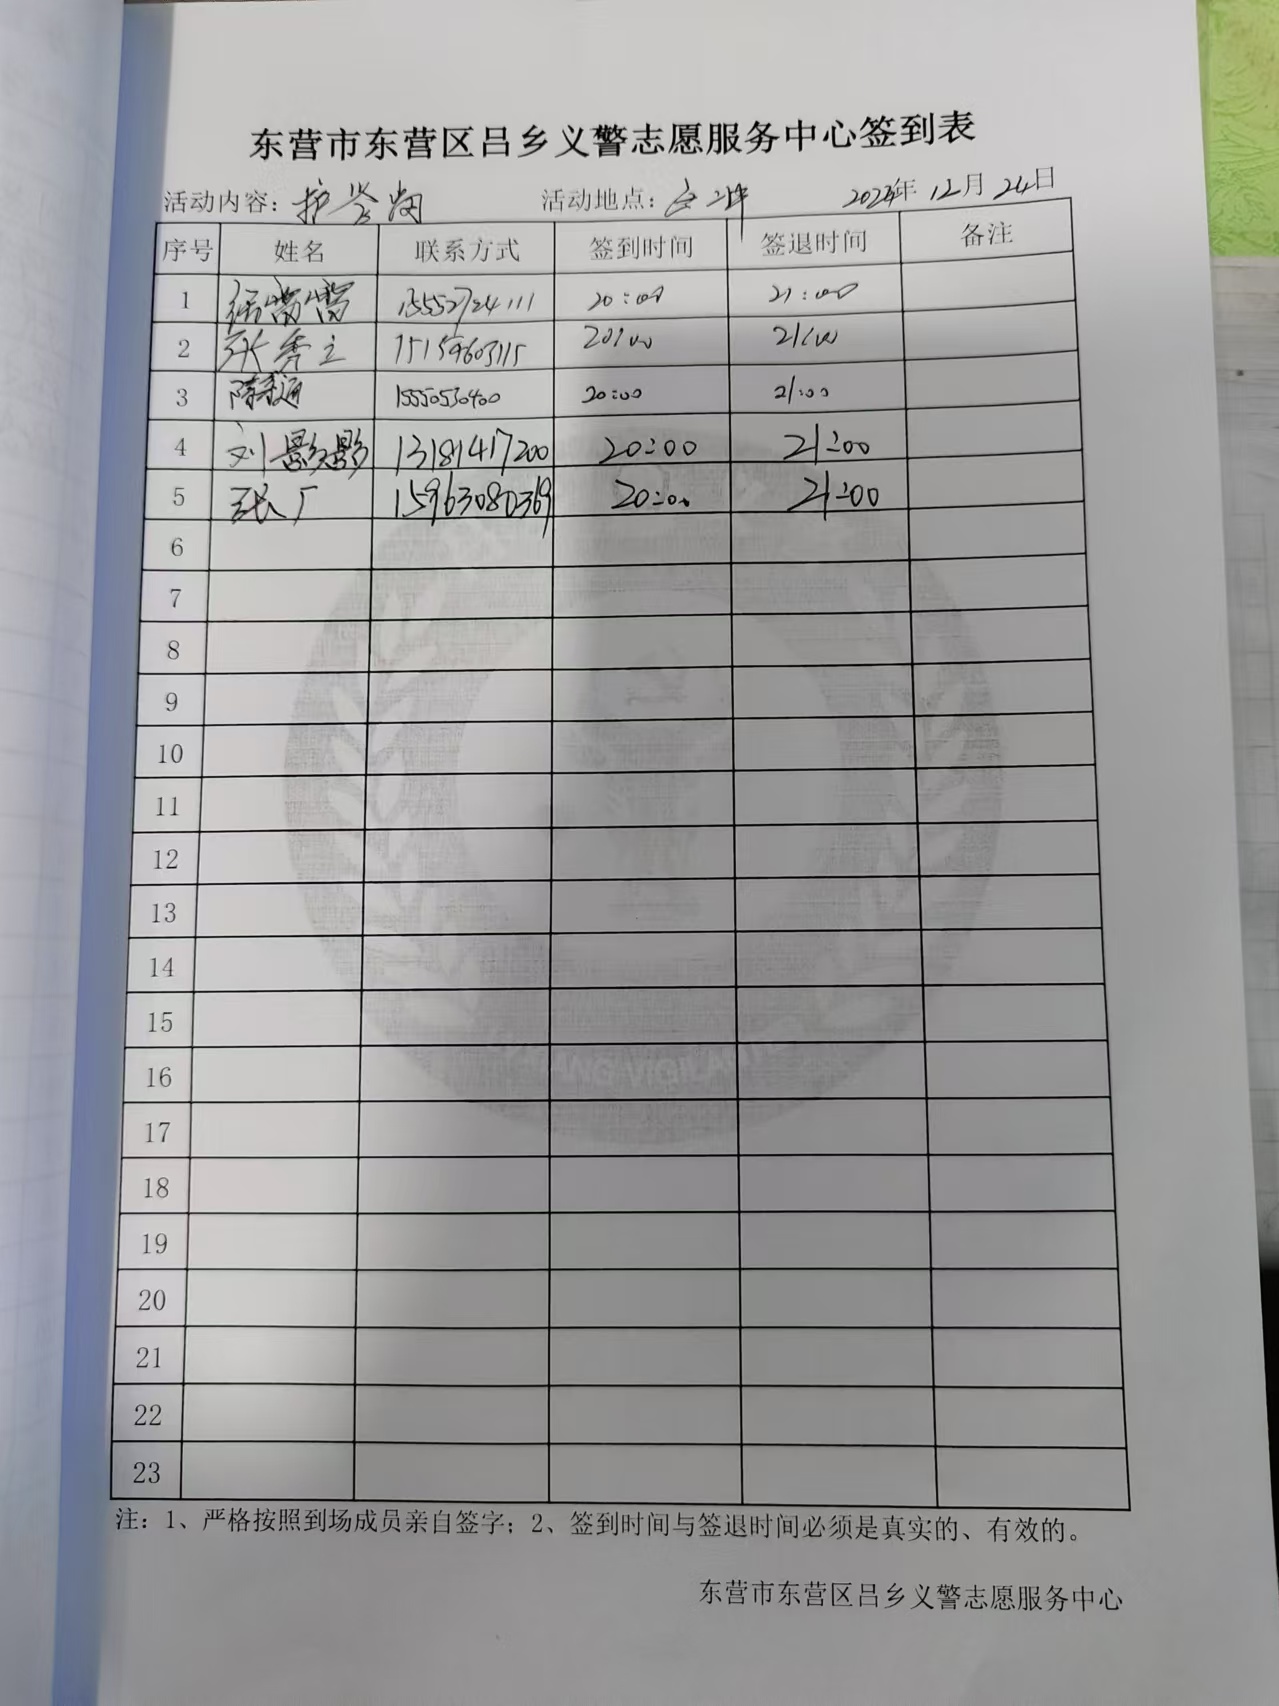 东营市东营区吕乡义警志愿服务中心签到表
活动内容：护学岗 活动地点： 2023年12月24日
序号 姓名 联系方式 签到时间 签退时间 备注
1 15552724111 20:00 21:00
2 张秀立 15159603115 20:00 21:00
3 陈通 15550530400 20:00 21:00
4 刘影影 13181417200 20:00 21:00
5 张广 15963080369 20:00 21:00
6
7
8
9
10
11
12
13
14
15
16
17
18
19
20
21
22
23
注：1、严格按照到场成员亲自签字；2、签到时间与签退时间必须是真实的、有效的。
东营市东营区吕乡义警志愿服务中心